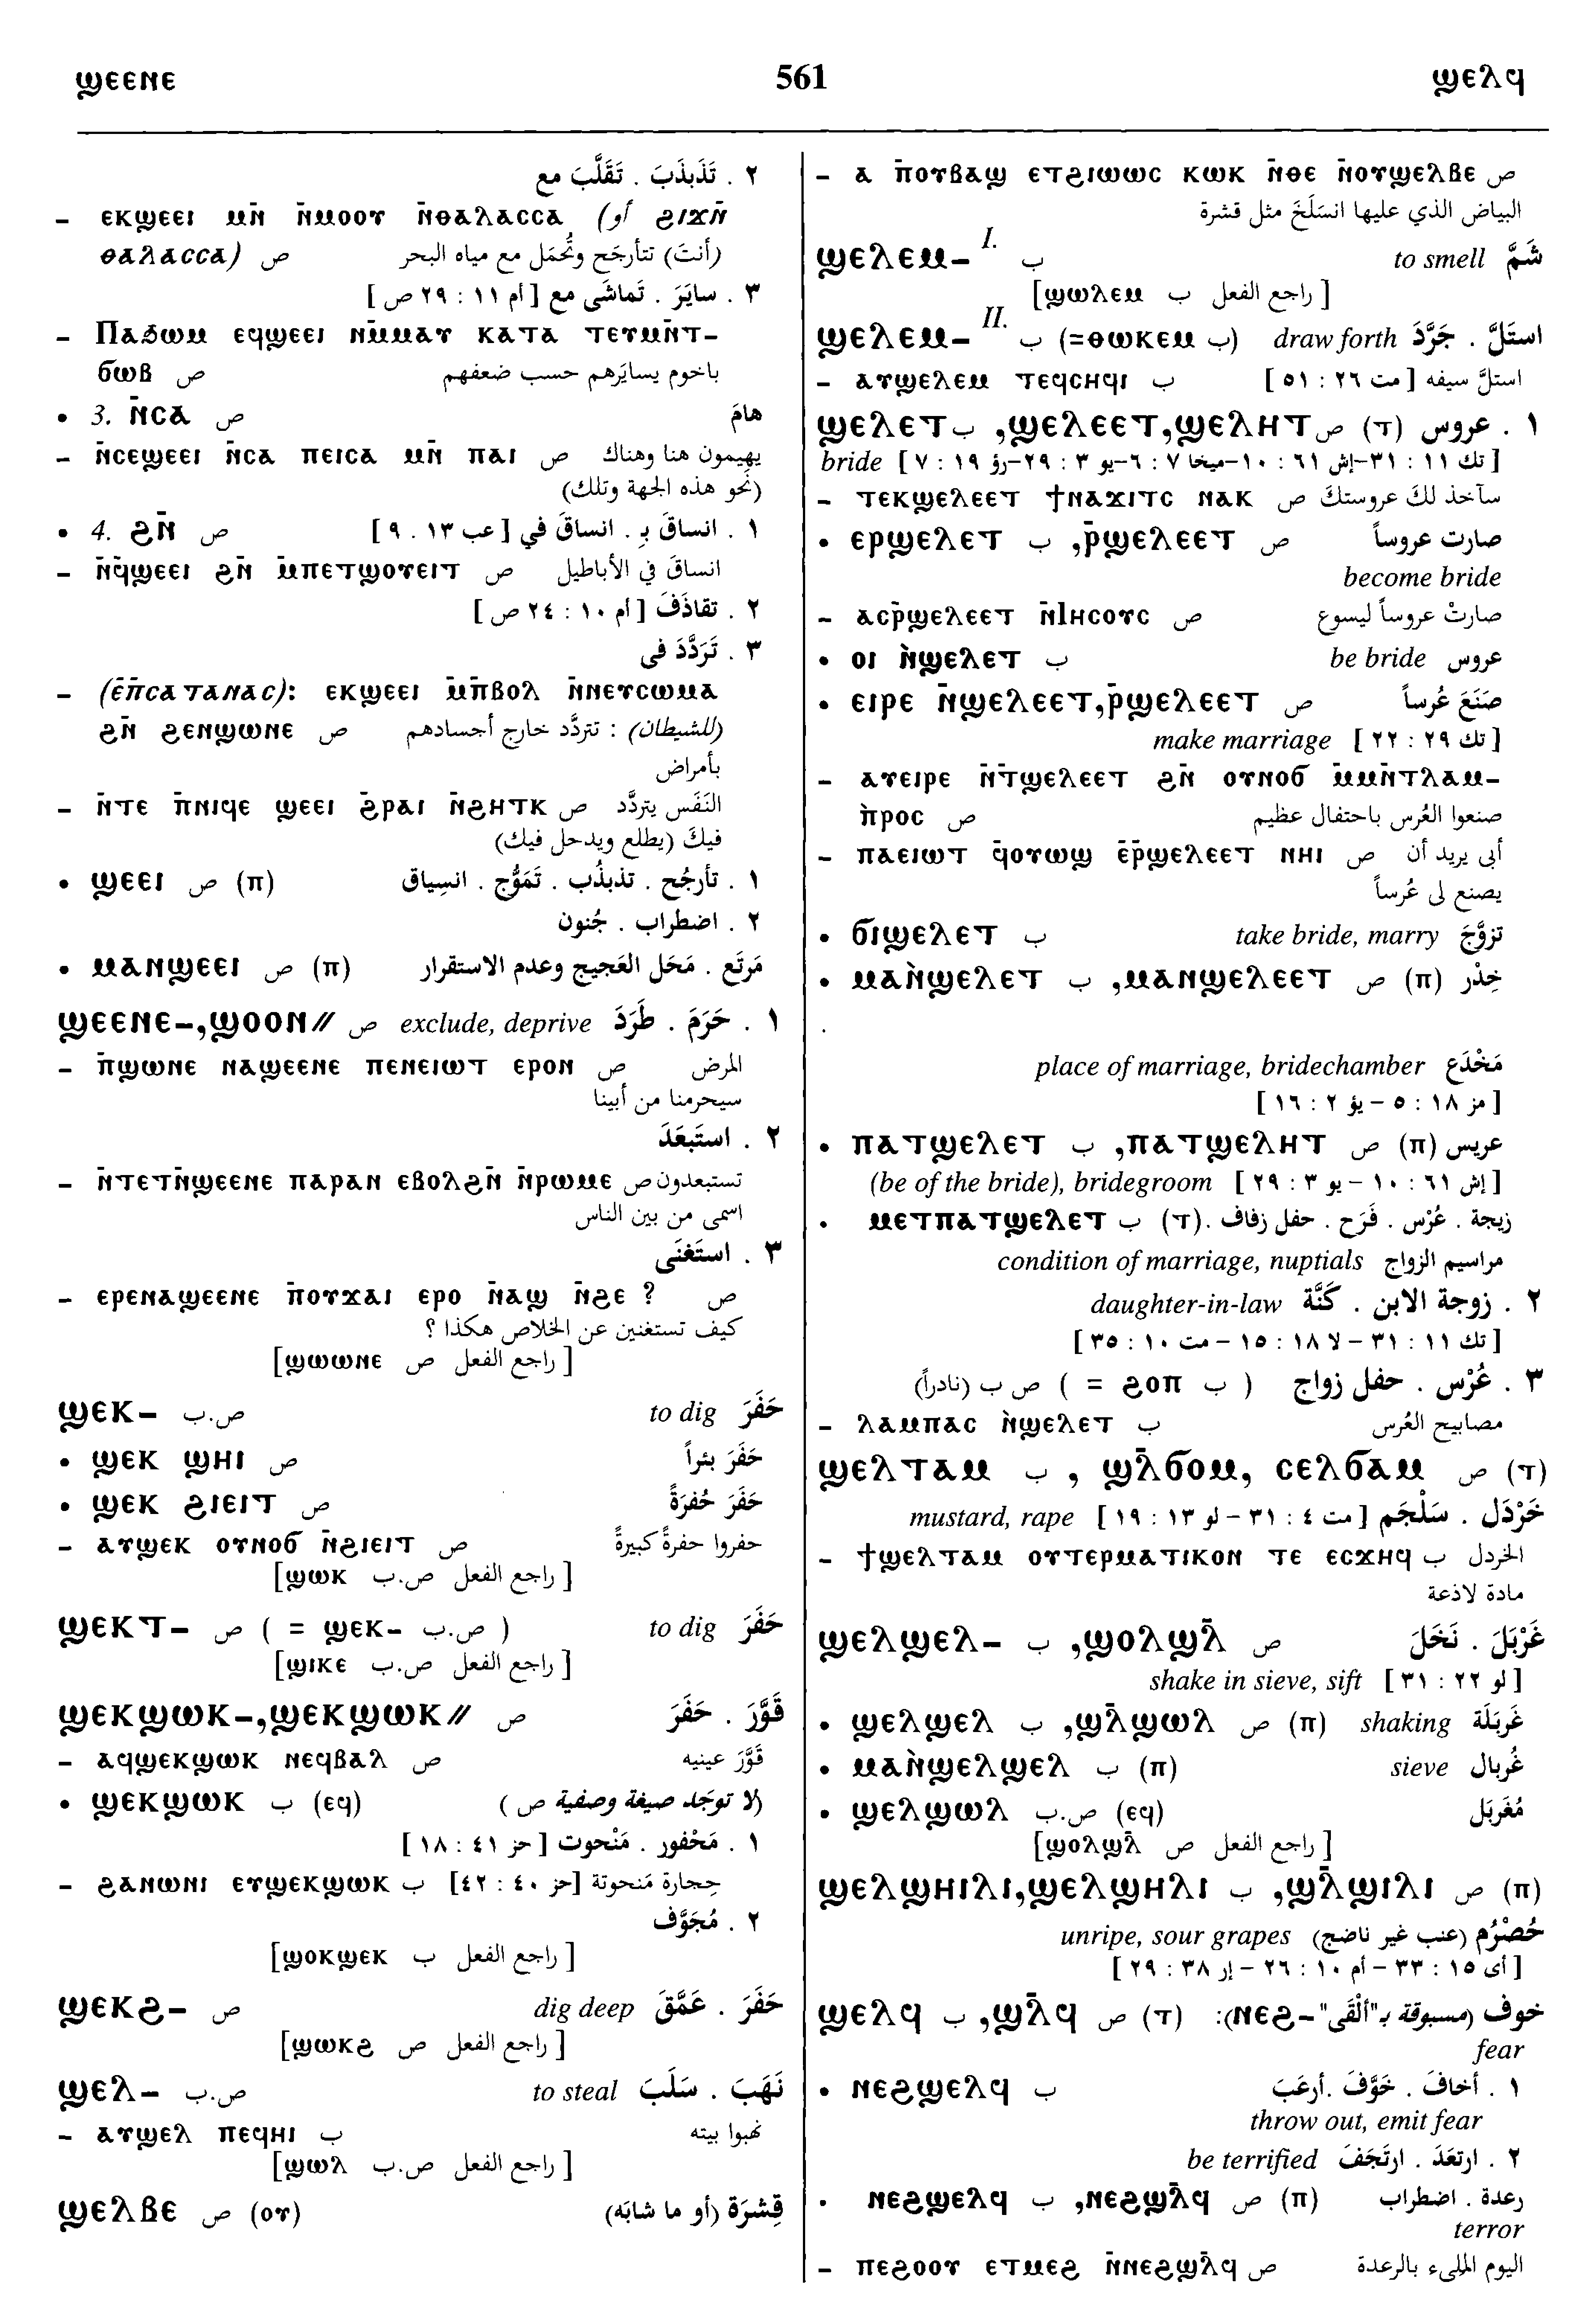 ϣⲉⲉⲛⲉ 561 ϣⲉⲗϥ
٢ . تَذَبذَبَ . تَقَلَّبَ مع
– ⲉⲕϣⲉⲉⲓ ⲙⲛ̄ ⲛ̄ⲙⲟⲟⲩ ⲛ̄ⲑⲁⲗⲁⲥⲥⲁ (أو ϩⲓϫⲛ̄
ⲑⲁⲗⲁⲥⲥⲁ) ص (أنتَ) تتأرجَح وتُحمَل مع مياه البحر
٣ . سايَرَ . تَماشَى مع [ أم ١١ : ٢٩ ص ]
– Ⲡⲁϧⲱⲙ ⲉϥϣⲉⲉⲓ ⲛⲙ̄ⲙⲁⲩ ⲕⲁⲧⲁ ⲧⲉⲩⲙⲛ̄ⲧ-
ϭⲱⲃ ص باخوم يسايَرهم حسب ضعفهم
• 3. ⲛ̄ⲥⲁ ص هامَ
– ⲛ̄ⲥⲉϣⲉⲉⲓ ⲛ̄ⲥⲁ ⲡⲉⲓⲥⲁ ⲙⲛ̄ ⲡⲁⲓ ص يهيمون هنا وهناك
(نَحو هذه الجهة وتلك)
• 4. ϩⲛ̄ ص ١ . انساقَ بـِ . انساقَ في [ عب ١٣ . ٩ ]
– ⲛ̄ϥ̄ϣⲉⲉⲓ ϩⲛ̄ ⲙ̄ⲡⲉⲧϣⲟⲩⲉⲓⲧ ص انساقَ في الأباطيل
٢ . تقاذَفَ [ أم ١٠ : ٢٤ ص ]
٣ . تَرَدَّدَ فى
– (ⲉ̄ⲡ̄ⲥⲁⲧⲁⲛⲁⲥ): ⲉⲕϣⲉⲉⲓ ⲙ̄ⲡ̄ⲃⲟⲗ ⲛ̄ⲛⲉⲩⲥⲱⲙⲁ
ϩⲛ̄ ϩⲉⲛϣⲱⲛⲉ ص (للشيطان) : تتردَّد خارج أجسادهم
بأمراض
– ⲛ̄ⲧⲉ ⲡ̄ⲛⲓϥⲉ ϣⲉⲉⲓ ϩ̄ⲣⲁⲓ ⲛ̄ϩⲏⲧⲕ ص النَفَس يتردَّد
فيكَ (يطلع ويدخل فيك)
• ϣⲉⲉⲓ ص (ⲡ) ١ . تأرجُح . تذبذُب . تَمَوُّج . انسِياق
٢ . اضطراب . جُنون
• ⲙⲁⲛϣⲉⲉⲓ ص (ⲡ) مَرتَع . مَحَل العَجيج وعدم الاستقرار
ϣⲉⲉⲛⲉ–,ϣⲟⲟⲛ// ص exclude, deprive ١ . حَرَمَ . طَرَدَ
– ⲡ̄ϣⲱⲛⲉ ⲛⲁϣⲉⲉⲛⲉ ⲡⲉⲛⲉⲓⲱⲧ ⲉⲣⲟⲛ ص المرض
سيحرمنا من أبينا
٢ . استَبعَدَ
– ⲛ̄ⲧⲉⲧⲛ̄ϣⲉⲉⲛⲉ ⲡⲁⲣⲁⲛ ⲉⲃⲟⲗϩⲛ̄ ⲛ̄ⲣⲱⲙⲉ ص تستبعدون
اسمى من بين الناس
٣ . استَغنَى
– ⲉⲣⲉⲛⲁϣⲉⲉⲛⲉ ⲡ̄ⲟⲩϫⲁⲓ ⲉⲣⲟ ⲛ̄ⲁϣ ⲛ̄ϩⲉ ? ص
كيف تستغنين عن الخلاص هكذا ؟
[ راجع الفعل ص ϣⲱⲱⲛⲉ]
ϣⲉⲕ– ص.ب to dig حَفَرَ
• ϣⲉⲕ ϣⲏⲓ ص حَفَرَ بئراً
• ϣⲉⲕ ϩⲓⲉⲓⲧ ص حَفَرَ حُفرَةً
– ⲁⲩϣⲉⲕ ⲟⲩⲛⲟϭ ⲛ̄ϩⲓⲉⲓⲧ ص حفروا حفرةً كبيرةً
[ راجع الفعل ص.ب ϣⲱⲕ]
ϣⲉⲕⲧ– ص ( = ϣⲉⲕ– ص.ب ) to dig حَفَرَ
[ راجع الفعل ص.ب ϣⲓⲕⲉ]
ϣⲉⲕϣⲱⲕ–,ϣⲉⲕϣⲱⲕ// ص قَوَّرَ . حَفَرَ
– ⲁϥϣⲉⲕϣⲱⲕ ⲛⲉϥⲃⲁⲗ ص قَوَّرَ عينيه
• ϣⲉⲕϣⲱⲕ ب (ⲉϥ) (لا توجَد صيغة وصفية ص )
١ . مَحْفور . مَنْحوت [ حز ٤١ : ١٨ ]
– ϩⲁⲛⲱⲛⲓ ⲉⲩϣⲉⲕϣⲱⲕ ب حِجارة مَنحوتة [حز ٤٠ : ٤٢]
٢ . مُجَوَّف
[ راجع الفعل ب ϣⲟⲕϣⲉⲕ]
ϣⲉⲕϩ– ص dig deep حَفَرَ . عَمَّقَ
[ راجع الفعل ص ϣⲱⲕϩ]
ϣⲉⲗ– ص.ب to steal نَهَبَ . سَلَبَ
– ⲁⲩϣⲉⲗ ⲡⲉϥⲏⲓ ب نهبوا بيته
[ راجع الفعل ص.ب ϣⲱⲗ]
ϣⲉⲗⲃⲉ ص (ⲟⲩ) قِشرَة (أو ما شابَه)
– ⲁ ⲡ̄ⲟⲩⲃⲁϣ ⲉⲧϩⲓⲱⲱⲥ ⲕⲱⲕ ⲛ̄ⲑⲉ ⲛ̄ⲟⲩϣⲉⲗⲃⲉ ص
البياض الذي عليها انسَلَخَ مثل قشرة
ϣⲉⲗⲉⲙ– I. ب to smell شَمَّ
[ راجع الفعل ب ϣⲱⲗⲉⲙ]
ϣⲉⲗⲉⲙ– II. ب (=ⲑⲱⲕⲉⲙ ب) draw forth استَلَّ . جَرَّدَ
– ⲁⲩϣⲉⲗⲉⲙ ⲧⲉϥⲥⲏϥⲓ ب استلَّ سيفه [ مت ٢٦ : ٥١ ]
ϣⲉⲗⲉⲧ ب ,ϣⲉⲗⲉⲉⲧ,ϣⲉⲗⲏⲧ ص (ⲧ) ١ . عروس
bride [ تك ١١ : ٣١–إش ٦١ : ١٠–ميخا ٧ : ٦–يو ٣ : ٢٩–رؤ ١٩ : ٧ ]
– ⲧⲉⲕϣⲉⲗⲉⲉⲧ ϯⲛⲁϫⲓⲧⲥ ⲛⲁⲕ ص سآخذ لكَ عروستكَ
• ⲉⲣϣⲉⲗⲉⲧ ب ,ⲣ̄ϣⲉⲗⲉⲉⲧ ص صارت عروساً
become bride
– ⲁⲥⲣ̄ϣⲉⲗⲉⲉⲧ ⲛ̄Ⲓⲏⲥⲟⲩⲥ ص صارتْ عروساً ليسوع
• ⲟⲓ ⲛ̀ϣⲉⲗⲉⲧ ب be bride عروس
• ⲉⲓⲣⲉ ⲛ̄ϣⲉⲗⲉⲉⲧ,ⲣ̄ϣⲉⲗⲉⲉⲧ ص صَنَعَ عُرساً
make marriage [ تك ٢٩ : ٢٢ ]
– ⲁⲩⲉⲓⲣⲉ ⲛ̄ⲧ̄ϣⲉⲗⲉⲉⲧ ϩⲛ̄ ⲟⲩⲛⲟϭ ⲙ̄ⲙⲛ̄ⲧⲗⲁⲙ-
ⲡ̀ⲣⲟⲥ ص صنعوا العُرس باحتفال عظيم
– ⲡⲁⲉⲓⲱⲧ ϥ̄ⲟⲩⲱϣ ⲉ̄ⲣ̄ϣⲉⲗⲉⲉⲧ ⲛⲏⲓ ص أبى يريد أن
يصنع لى عُرساً
• ϭⲓϣⲉⲗⲉⲧ ب take bride, marry تزوَّجَ
• ⲙⲁⲛ̀ϣⲉⲗⲉⲧ ب ,ⲙⲁⲛϣⲉⲗⲉⲉⲧ ص (ⲡ) خِدْر
place of marriage, bridechamber مَخْدَع
[ مز ١٨ : ٥ – يؤ ٢ : ١٦ ]
• ⲡⲁⲧϣⲉⲗⲉⲧ ب ,ⲡⲁⲧϣⲉⲗⲏⲧ ص (ⲡ) عريس
(be of the bride), bridegroom [ إش ٦١ : ١٠ – يو ٣ : ٢٩ ]
• ⲙⲉⲧⲡⲁⲧϣⲉⲗⲉⲧ ب (ⲧ). زيجة . عُرْس . فَرَح . حفل زفاف
condition of marriage, nuptials مراسيم الزواج
٢ . زوجة الابن . كَنَّة daughter-in-law
[ تك ١١ : ٣١ – لا ١٨ : ١٥ – مت ١٠ : ٣٥ ]
٣ . عُرْس . حفل زواج ( ب ϩⲟⲡ = ) ص ب (نادراً)
– ⲗⲁⲙⲡⲁⲥ ⲛ̀ϣⲉⲗⲉⲧ ب مصابيح العُرس
ϣⲉⲗⲧⲁⲙ ب , ϣⲗ̄ϭⲟⲙ, ⲥⲉⲗϭⲁⲙ ص (ⲧ)
mustard, rape [ مت ٤ : ٣١ – لو ١٣ : ١٩ ] خَرْدَل . سَلْجَم
– ϯϣⲉⲗⲧⲁⲙ ⲟⲩⲧⲉⲣⲙⲁⲧⲓⲕⲟⲛ ⲧⲉ ⲉⲥϫⲏϥ ب الخردل
مادة لاذعة
ϣⲉⲗϣⲉⲗ– ب ,ϣⲟⲗϣⲗ̄ ص غَرْبَلَ . نَخَلَ
shake in sieve, sift [ لو ٢٢ : ٣١ ]
• ϣⲉⲗϣⲉⲗ ب ,ϣⲗ̄ϣⲱⲗ ص (ⲡ) shaking غَربَلَة
• ⲙⲁⲛ̀ϣⲉⲗϣⲉⲗ ب (ⲡ) sieve غُربال
• ϣⲉⲗϣⲱⲗ ص.ب (ⲉϥ) مُغَربَل
[ راجع الفعل ص ϣⲟⲗϣⲗ̄]
ϣⲉⲗϣⲏⲓⲗⲓ,ϣⲉⲗϣⲏⲗⲓ ب ,ϣⲗ̄ϣⲓⲗⲓ ص (ⲡ)
unripe, sour grapes حُصْرُم (عنب غير ناضج)
[ أى ١٥ : ٣٣ – أم ١٠ : ٢٦ – إر ٣٨ : ٢٩ ]
ϣⲉⲗϥ ب ,ϣⲗ̄ϥ ص (ⲧ) خوف (مسبوقة بـ"ألْقَى"–ⲛⲉϩ):
fear
• ⲛⲉϩϣⲉⲗϥ ب ١ . أخافَ . خَوَّفَ .أرعَبَ
throw out, emit fear
٢ . ارتعَدَ . ارتَجَفَ be terrified
• ⲛⲉϩϣⲉⲗϥ ب ,ⲛⲉϩϣⲗ̄ϥ ص (ⲡ) رعدة . اضطراب
terror
– ⲡⲉϩⲟⲟⲩ ⲉⲧⲙⲉϩ ⲛ̄ⲛⲉϩϣⲗ̄ϥ ص اليوم المليء بالرعدة